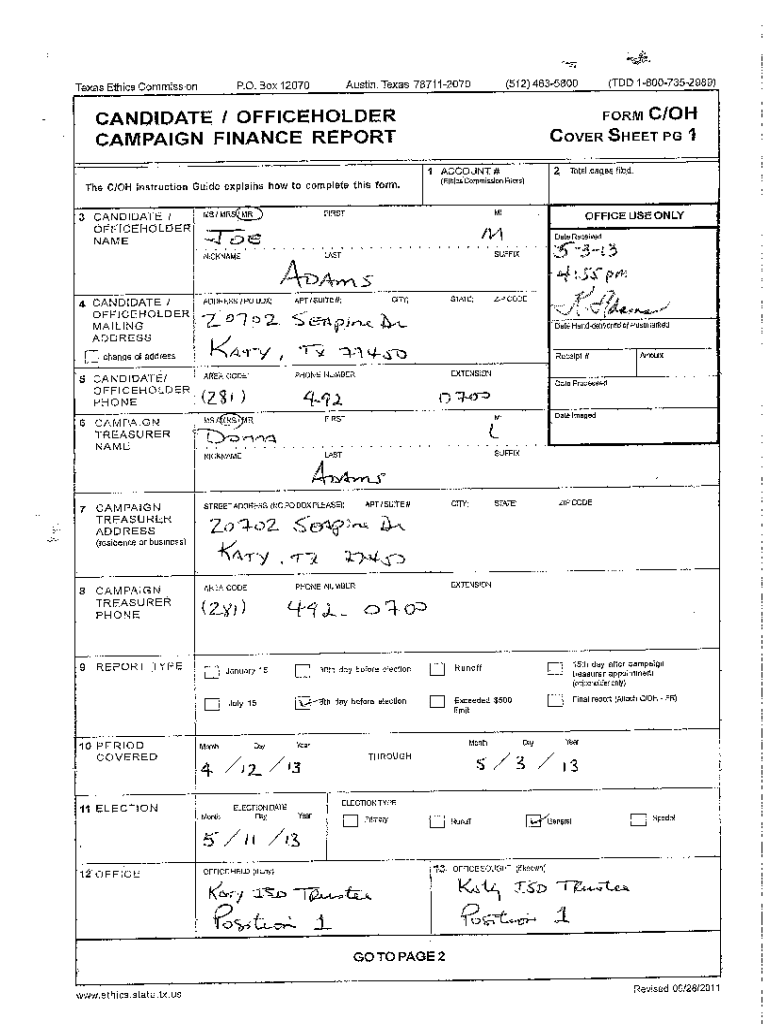 Texas Ethics Commission P.O. Box 12070 Austin, Texas 78711-2070 (512) 463-5800 (TDD 1-800-735-2989)
CANDIDATE / OFFICEHOLDER FORM C/OH
CAMPAIGN FINANCE REPORT COVER SHEET PG 1
The C/OH Instruction Guide explains how to complete this form.
1 ACCOUNT #
(Ethics Commission Filers)
2 Total pages filed:
3 CANDIDATE / OFFICEHOLDER NAME
MS / MRS / MR FIRST MI
JOE M
NICKNAME LAST SUFFIX
ADAMS
OFFICE USE ONLY
Date Received
5-3-13
4:55 pm
Date Hand-delivered or Postmarked
Receipt # Amount
Date Processed
Date Imaged
4 CANDIDATE / OFFICEHOLDER MAILING ADDRESS
change of address
ADDRESS / PO BOX; APT / SUITE #; CITY; STATE; ZIP CODE
20702 SEApine Dr
KATY, TX 77450
5 CANDIDATE/ OFFICEHOLDER PHONE
AREA CODE PHONE NUMBER EXTENSION
(281) 492 0700
6 CAMPAIGN TREASURER NAME
MS / MRS / MR FIRST MI
Donna L
NICKNAME LAST SUFFIX
ADAMS
7 CAMPAIGN TREASURER ADDRESS
(residence or business)
STREET ADDRESS (NO PO BOX PLEASE); APT / SUITE #; CITY; STATE; ZIP CODE
20702 SEApine Dr
KATY, TX 77450
8 CAMPAIGN TREASURER PHONE
AREA CODE PHONE NUMBER EXTENSION
(281) 492-0700
9 REPORT TYPE
January 15 30th day before election Runoff 15th day after campaign treasurer appointment (officeholder only)
July 15 8th day before election Exceeded $500 limit Final report (Attach C/OH - FR)
10 PERIOD COVERED
Month Day Year THROUGH Month Day Year
4 / 12 / 13 5 / 3 / 13
11 ELECTION
ELECTION DATE
Month Day Year
5 / 11 / 13
ELECTION TYPE
Primary Runoff General Special
12 OFFICE
OFFICE HELD (if any)
Katy ISD Trustee
Position 1
13 OFFICE SOUGHT (if known)
Katy ISD Trustee
Position 1
GO TO PAGE 2
www.ethics.state.tx.us Revised 09/28/2011